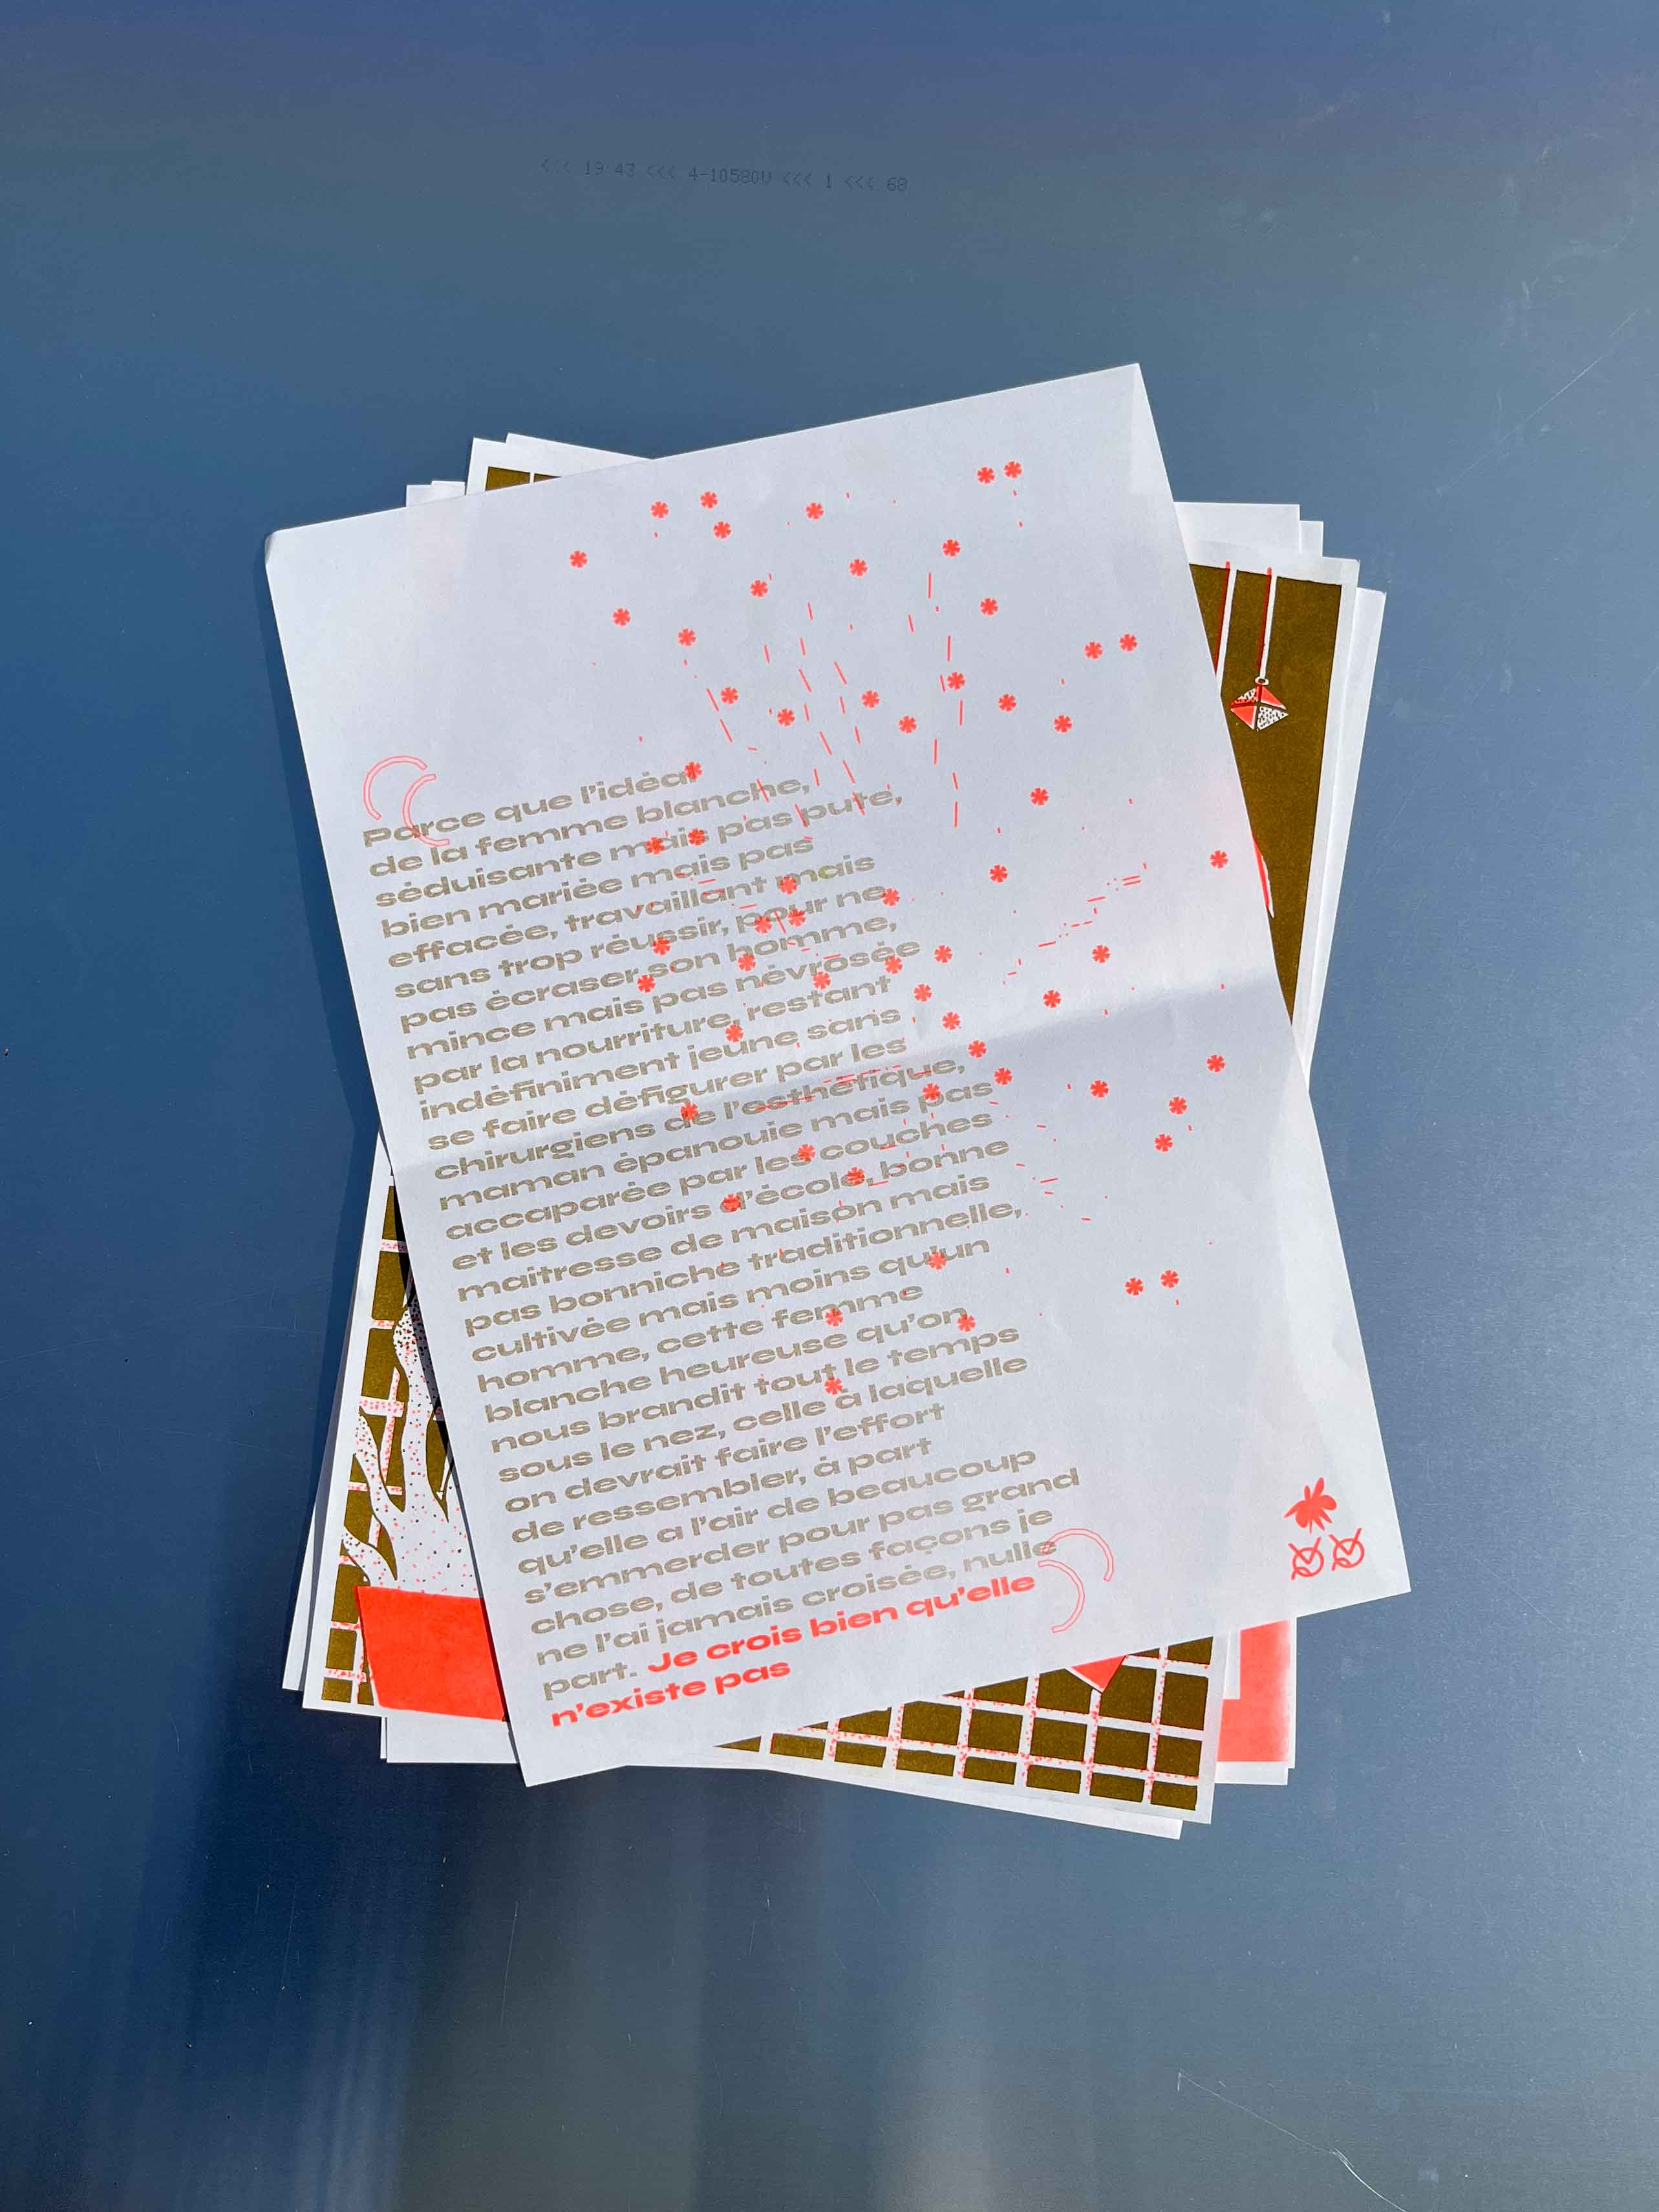 <<< 19 43 <<< 4-10580U <<< 1 <<< 68
Parce que l'idéal
de la femme blanche,
séduisante mais pas pute,
bien mariée mais pas
effacée, travaillant mais
sans trop réussir, pour ne
pas écraser son homme,
mince mais pas névrosée
par la nourriture, restant
indéfiniment jeune sans
se faire défigurer par les
chirurgiens de l'esthétique,
maman épanouie mais pas
accaparée par les couches
et les devoirs d'école, bonne
maitresse de maison mais
pas bonniche traditionnelle,
cultivée mais moins qu'un
homme, cette femme
blanche heureuse qu'on
nous brandit tout le temps
sous le nez, celle à laquelle
on devrait faire l'effort
de ressembler, à part
qu'elle a l'air de beaucoup
s'emmerder pour pas grand
chose, de toutes façons je
ne l'ai jamais croisée, nulle
part. Je crois bien qu'elle
n'existe pas